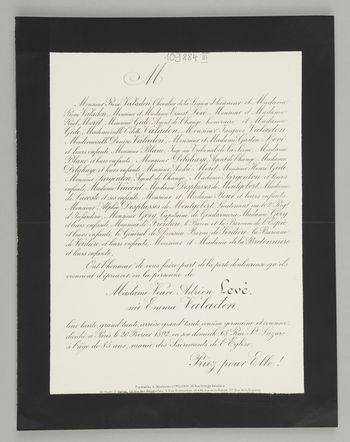 109884 III
M
Monsieur Pierre Valadon Chevalier de la Légion d'honneur et Madame
Pierre Valadon, Monsieur et Madame Ernest Levé, Monsieur et Madame
Paul Morel, Monsieur Gide Agent de Change honoraire et Madame
Gide, Mademoiselle Odette Valadon, Monsieur Jacques Valadon
Mademoiselle Denise Valadon, Monsieur et Madame Gaston Levé
et leurs enfants, Monsieur Blanc Juge au Tribunal de la Seine, Madame
Blanc et leurs enfants, Monsieur Delahaye Agent de Change, Madame
Delahaye et leurs enfants, Monsieur André Morel, Monsieur Henri Gide
Monsieur Sargenton, Agent de Change, Madame Sargenton et leurs
enfants, Madame Vincent, Madame Desplasses de Montgobert, Madame
de Lacoste et ses enfants, Monsieur et Madame et leurs enfants
Monsieur Desplasses de Montgobert, Lieutenant au Régt
d'Infanterie, Monsieur Géry, Capitaine de Gendarmerie, Madame Géry
et leurs enfants, Monsieur de Verdière, le Baron et la Baronne
et leurs enfants, le Général de Division Baron de Verdière, la Baronne
de Verdière et leurs enfants, Monsieur et Madame de la Bretonnière
et leurs enfants;
Ont l'honneur de vous faire part de la perte douloureuse qu'ils
viennent d'éprouver en la personne de
Madame Veuve Adrien Levé,
née Emma Valadon
leur tante, grand'tante, arrière grand'tante, cousine germaine et cousine,
décédée à Paris le 20 Février 1892, en son domicile, 63 Rue St Lazare,
à l'âge de 85 ans, munie des Sacrements de l'Eglise.
Priez pour Elle!